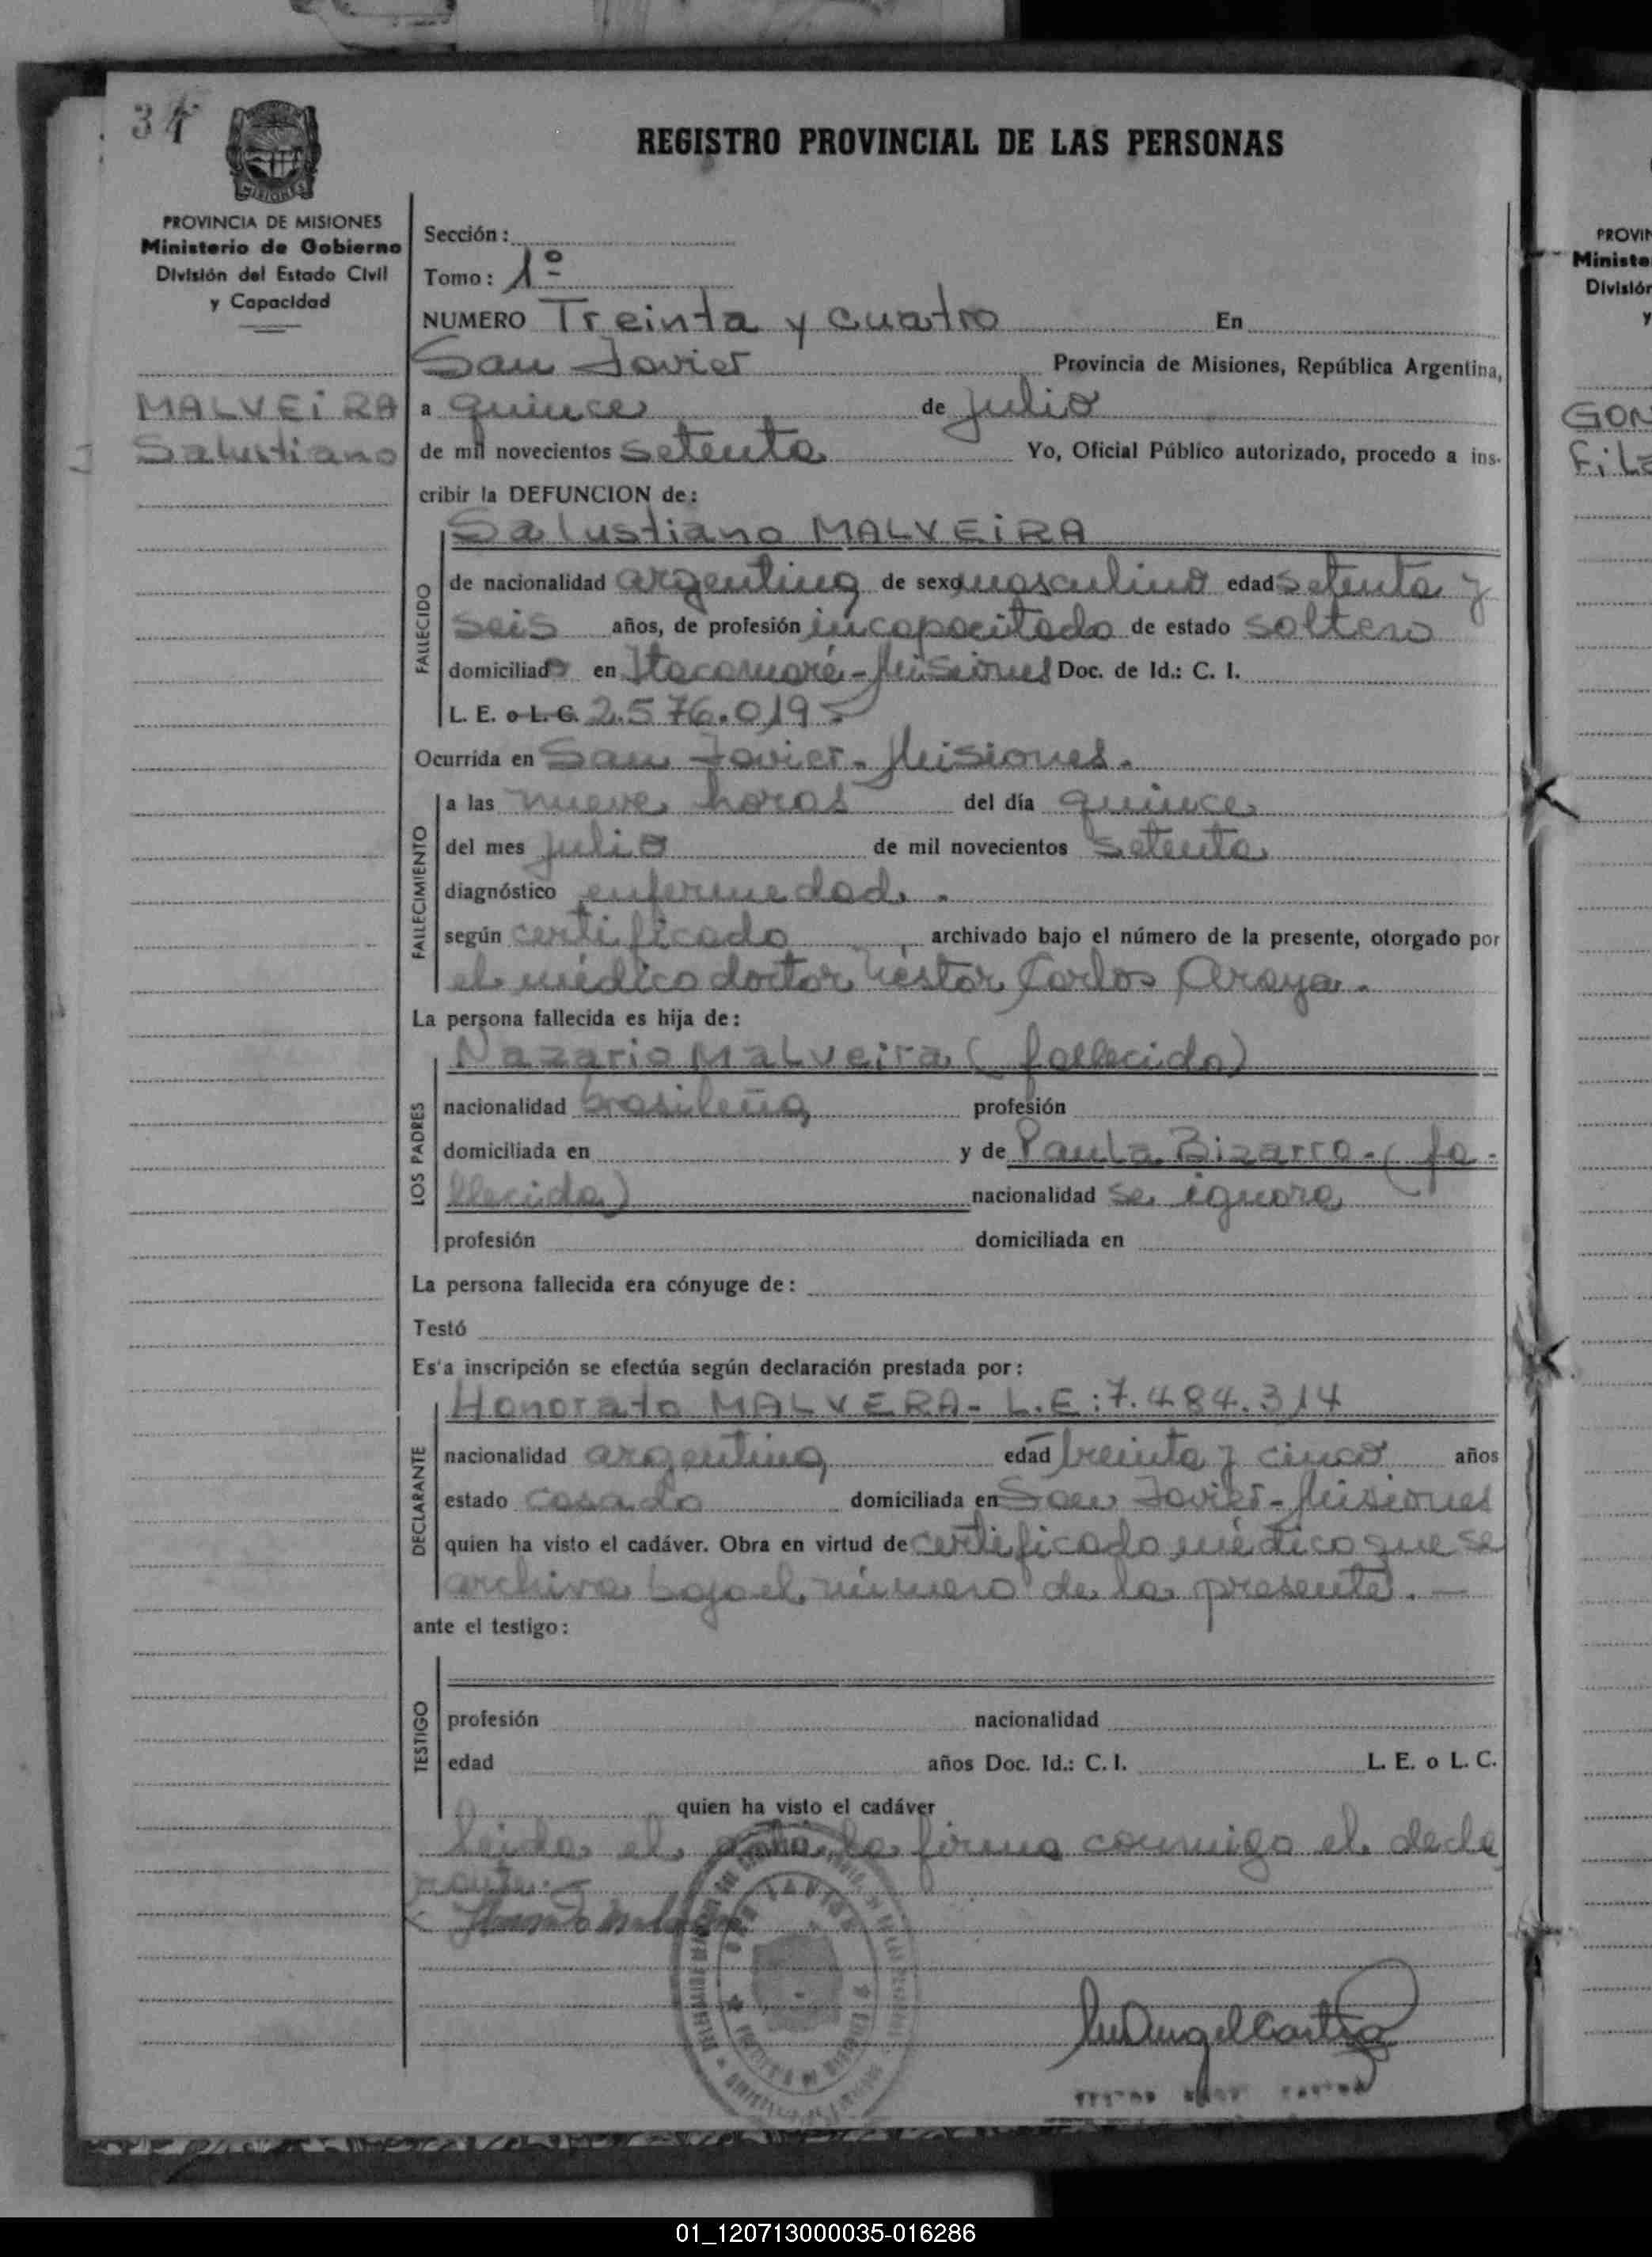 34
REGISTRO PROVINCIAL DE LAS PERSONAS
MISIONES
PROVINCIA DE MISIONES
Ministerio de Gobierno
División del Estado Civil
y Capacidad
MALVEIRA
Salustiano
Sección:
Tomo: 1º
NUMERO Treinta y cuatro En
San Javier Provincia de Misiones, República Argentina,
a quince de julio
de mil novecientos setenta Yo, Oficial Público autorizado, procedo a ins-
cribir la DEFUNCION de:
Salustiano MALVEIRA
FALLECIDO
de nacionalidad argentina de sexo masculino edad setenta y
seis años, de profesión incapacitado de estado soltero
domiciliado en Itacaruaré-Misiones Doc. de Id.: C. I.
L. E. o L. C. 2.576.019
Ocurrida en San Javier-Misiones.
FALLECIMIENTO
a las nueve horas del día quince
del mes julio de mil novecientos setenta
diagnóstico enfermedad.
según certificado archivado bajo el número de la presente, otorgado por
el médico doctor Néstor Carlos Araya.
La persona fallecida es hija de:
LOS PADRES
Nazario MALVEIRA (fallecido)
nacionalidad brasileña profesión
domiciliada en y de Paula Bizarro-(fa-
llecida) nacionalidad se ignora
profesión domiciliada en
La persona fallecida era cónyuge de:
Testó
Es'a inscripción se efectúa según declaración prestada por:
DECLARANTE
Honorato MALVERA- L.E:7.484.314
nacionalidad argentina edad treinta y cinco años
estado casado domiciliada en San Javier-Misiones
quien ha visto el cadáver. Obra en virtud de certificado médico que se
archiva bajo el número de la presente.-
ante el testigo:
TESTIGO
profesión nacionalidad
edad años Doc. Id.: C. I. L. E. o L. C.
quien ha visto el cadáver
leída el acta la firma conmigo el decla
rante.-
PROVIN
Ministe
División
y
GON
Fil
01_120713000035-016286